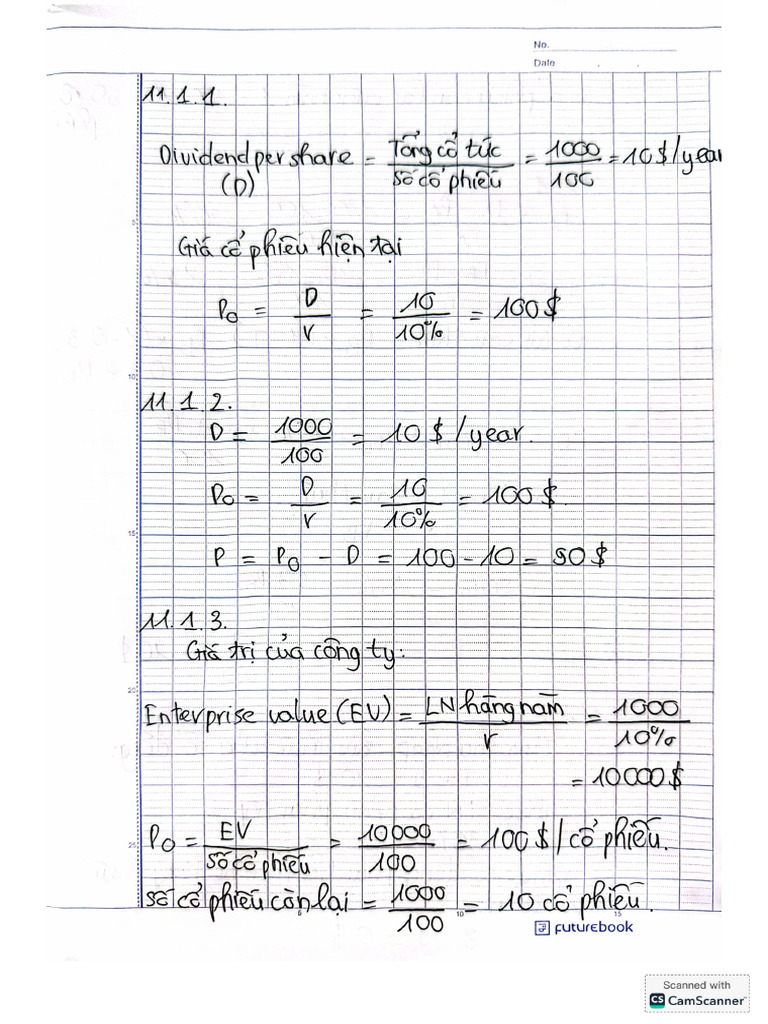 No.
Date
11.1.1.
Dividend per share = Tổng cổ tức / số cổ phiếu = 1000 / 100 = 10 $/year
(D)
Giá cổ phiếu hiện tại
P0 = D / r = 10 / 10% = 100 $
11.1.2.
D = 1000 / 100 = 10 $ / year.
P0 = D / r = 10 / 10% = 100 $
P = P0 - D = 100 - 10 = 90 $
11.1.3.
Giá trị của công ty:
Enterprise value (EV) = LN hàng năm / r = 1000 / 10%
= 10000 $
P0 = EV / số cổ phiếu = 10000 / 100 = 100 $ / cổ phiếu.
số cổ phiếu còn lại = 1000 / 100 = 10 cổ phiếu.
5
10
15
20
25
5
10
15
futurebook
Scanned with
CS CamScanner